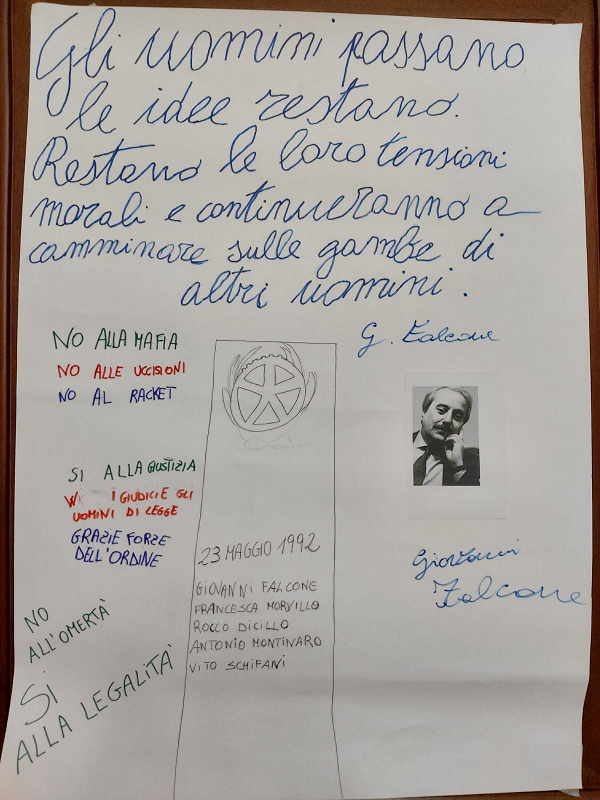 Gli uomini passano
le idee restano.
Restano le loro tensioni
morali e continueranno a
camminare sulle gambe di
altri uomini.
G. Falcone
NO ALLA MAFIA
NO ALLE UCCISIONI
NO AL RACKET
SI ALLA GIUSTIZIA
W I GIUDICI E GLI
UOMINI DI LEGGE
GRAZIE FORZE
DELL'ORDINE
NO
ALL'OMERTÀ
SI
ALLA LEGALITÀ
23 MAGGIO 1992
GIOVANNI FALCONE
FRANCESCA MORVILLO
ROCCO DICILLO
ANTONIO MONTINARO
VITO SCHIFANI
Giovanni
Falcone